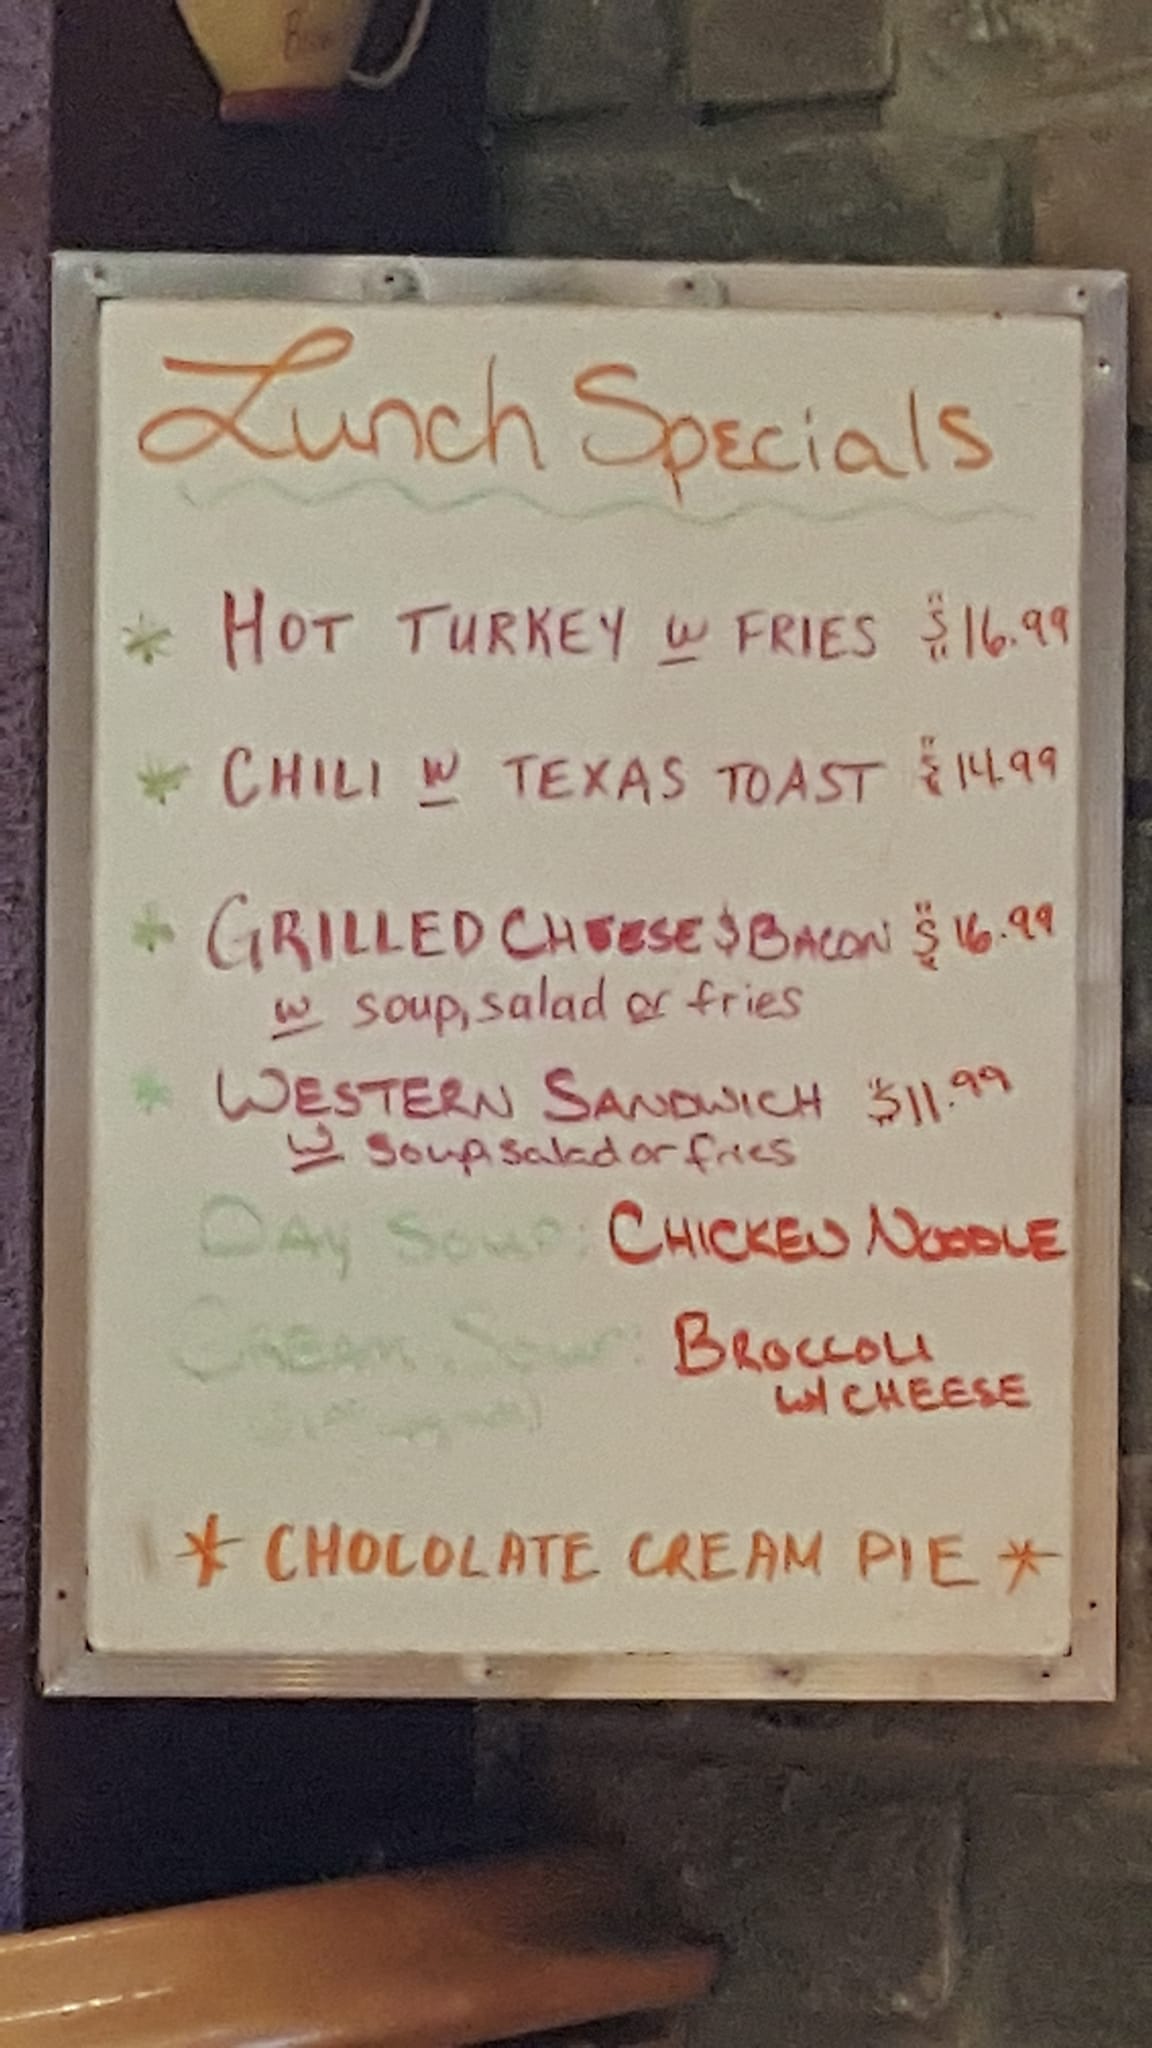 Lunch Specials
* HOT TURKEY w FRIES $16.99
* CHILI w TEXAS TOAST $14.99
* GRILLED CHEESE & BACON $16.99
w soup, salad or fries
* WESTERN SANDWICH $11.99
w soup, salad or fries
DAY SOUP: CHICKEN NOODLE
CREAM SOUP: BROCCOLI
W/ CHEESE
* CHOCOLATE CREAM PIE *